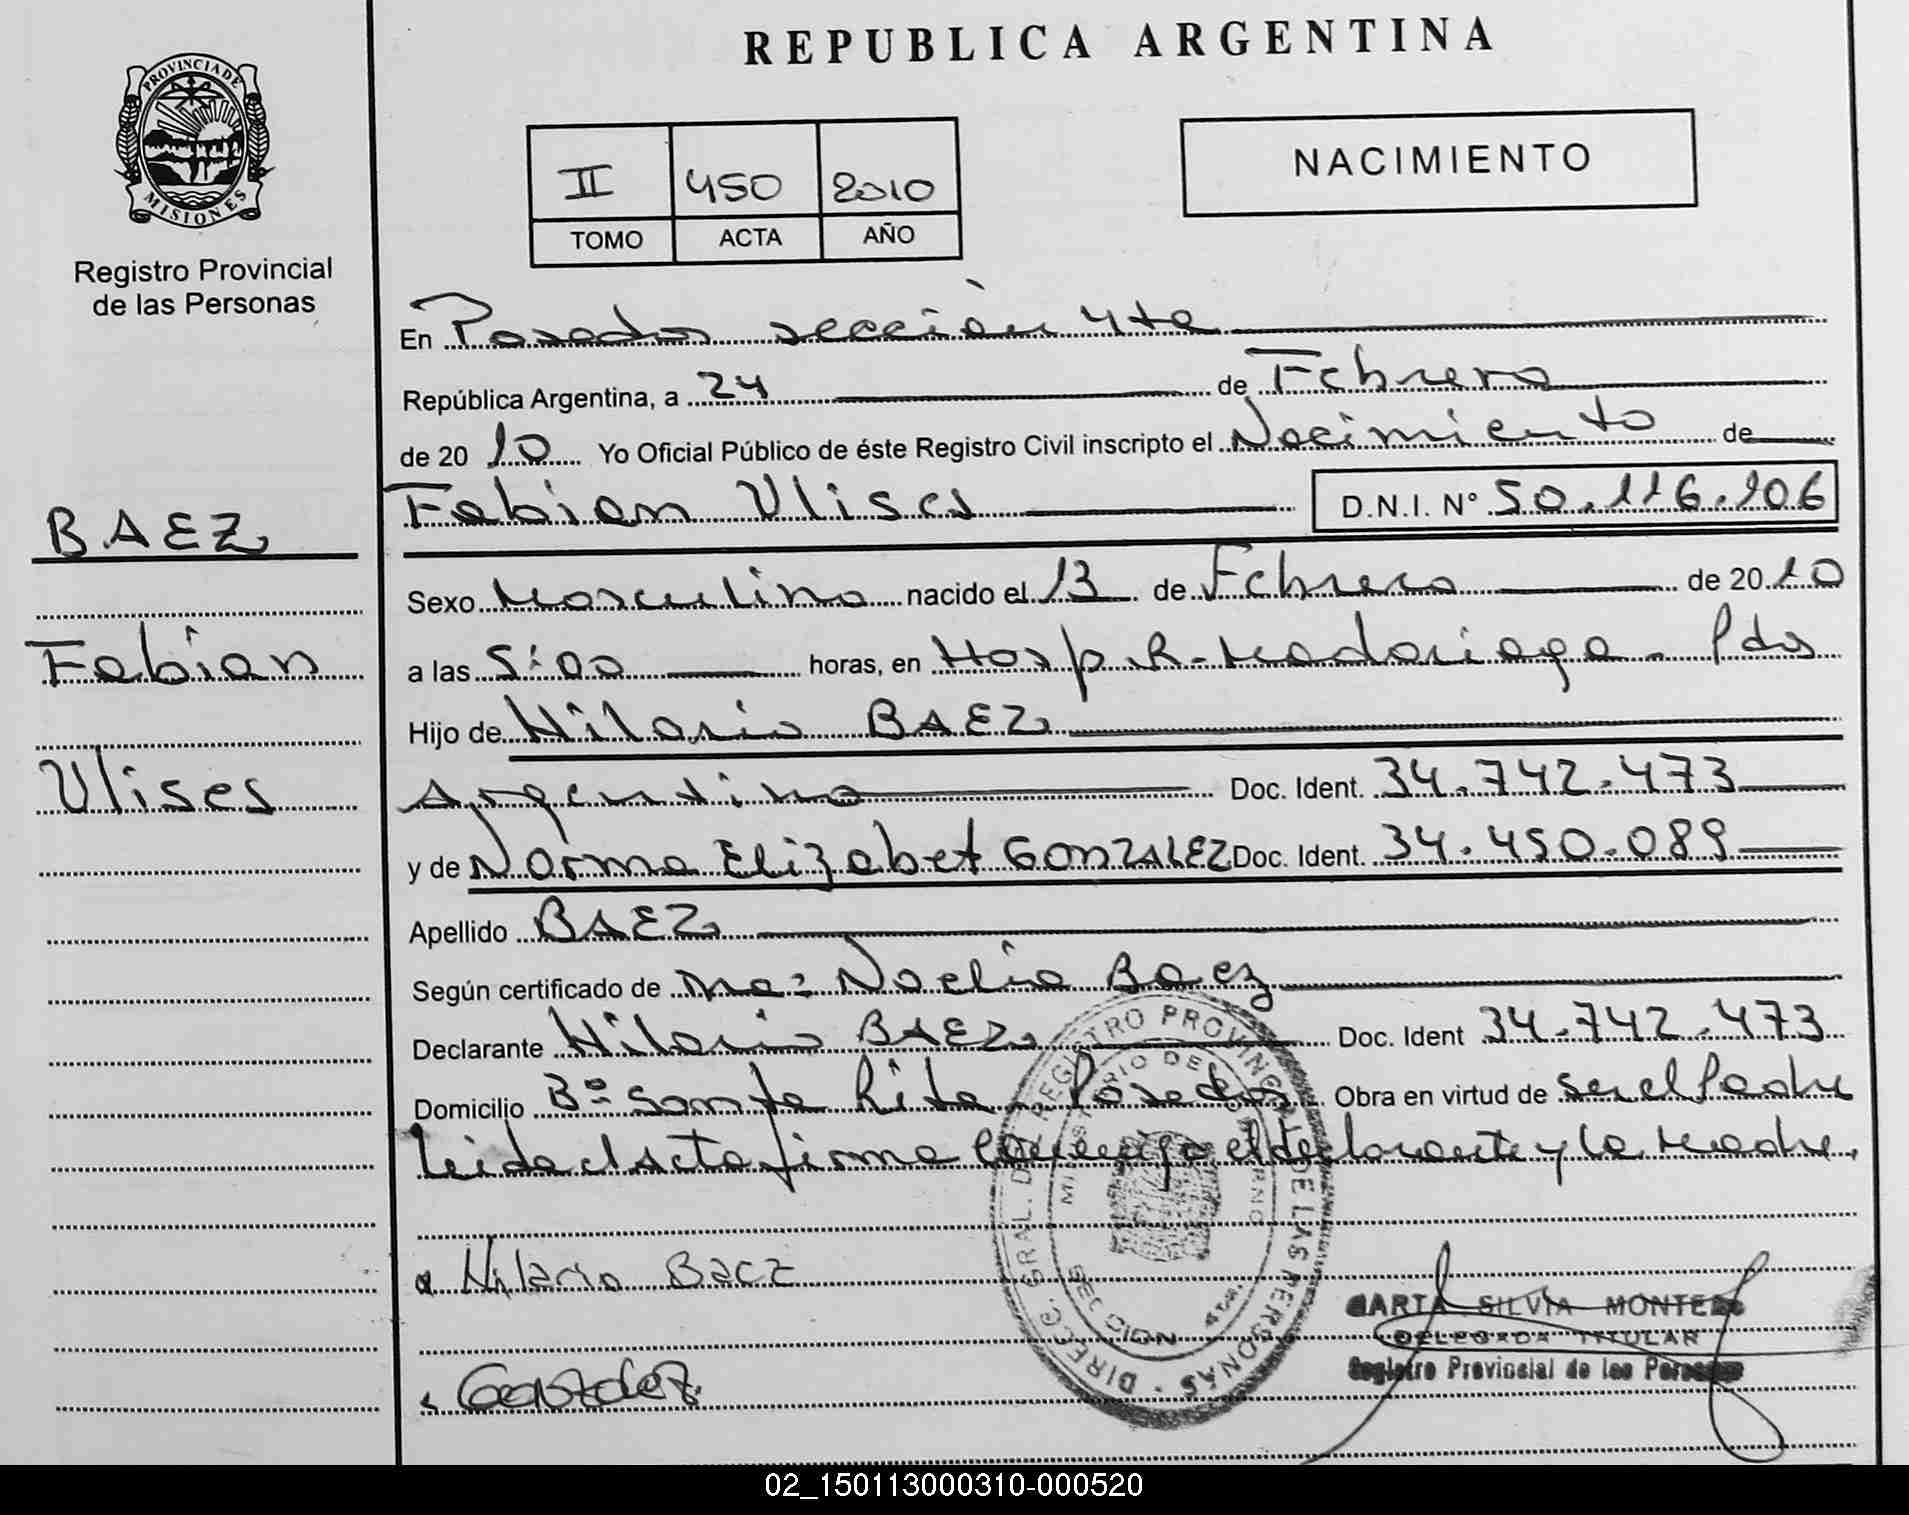 REPUBLICA ARGENTINA
PROVINCIA DE
MISIONES
Registro Provincial
de las Personas
II 450 2010
TOMO ACTA AÑO
NACIMIENTO
En Posadas sección 4ta
República Argentina, a 24 de Febrero
de 2010 Yo Oficial Público de éste Registro Civil inscripto el Nacimiento de
Fabian Ulises D.N.I. N° 50.116.106
BAEZ
Fabian
Ulises
Sexo Masculino nacido el 13 de Febrero de 2010
a las 5:00 horas, en Hosp. R. Madariaga - Pdas
Hijo de Hilario BAEZ
Argentino Doc. Ident. 34.742.473
y de Norma Elizabet GONZALEZ Doc. Ident. 34.450.089
Apellido BAEZ
Según certificado de Noelia Baez
Declarante Hilario BAEZ Doc. Ident 34.742.473
Domicilio Bº Santa Rita - Posadas Obra en virtud de ser el Padre
Leida el Acta firma conmigo el declarante y la Madre.
DIREC. GRAL. DEL REGISTRO PROVINCIAL DE LAS PERSONAS
MINISTERIO DE GOBIERNO
SECCION 4ta.
Hilario Baez
Gonzalez
MARTA SILVIA MONTE
DELEGADA TITULAR
Registro Provincial de las Personas
02_150113000310-000520